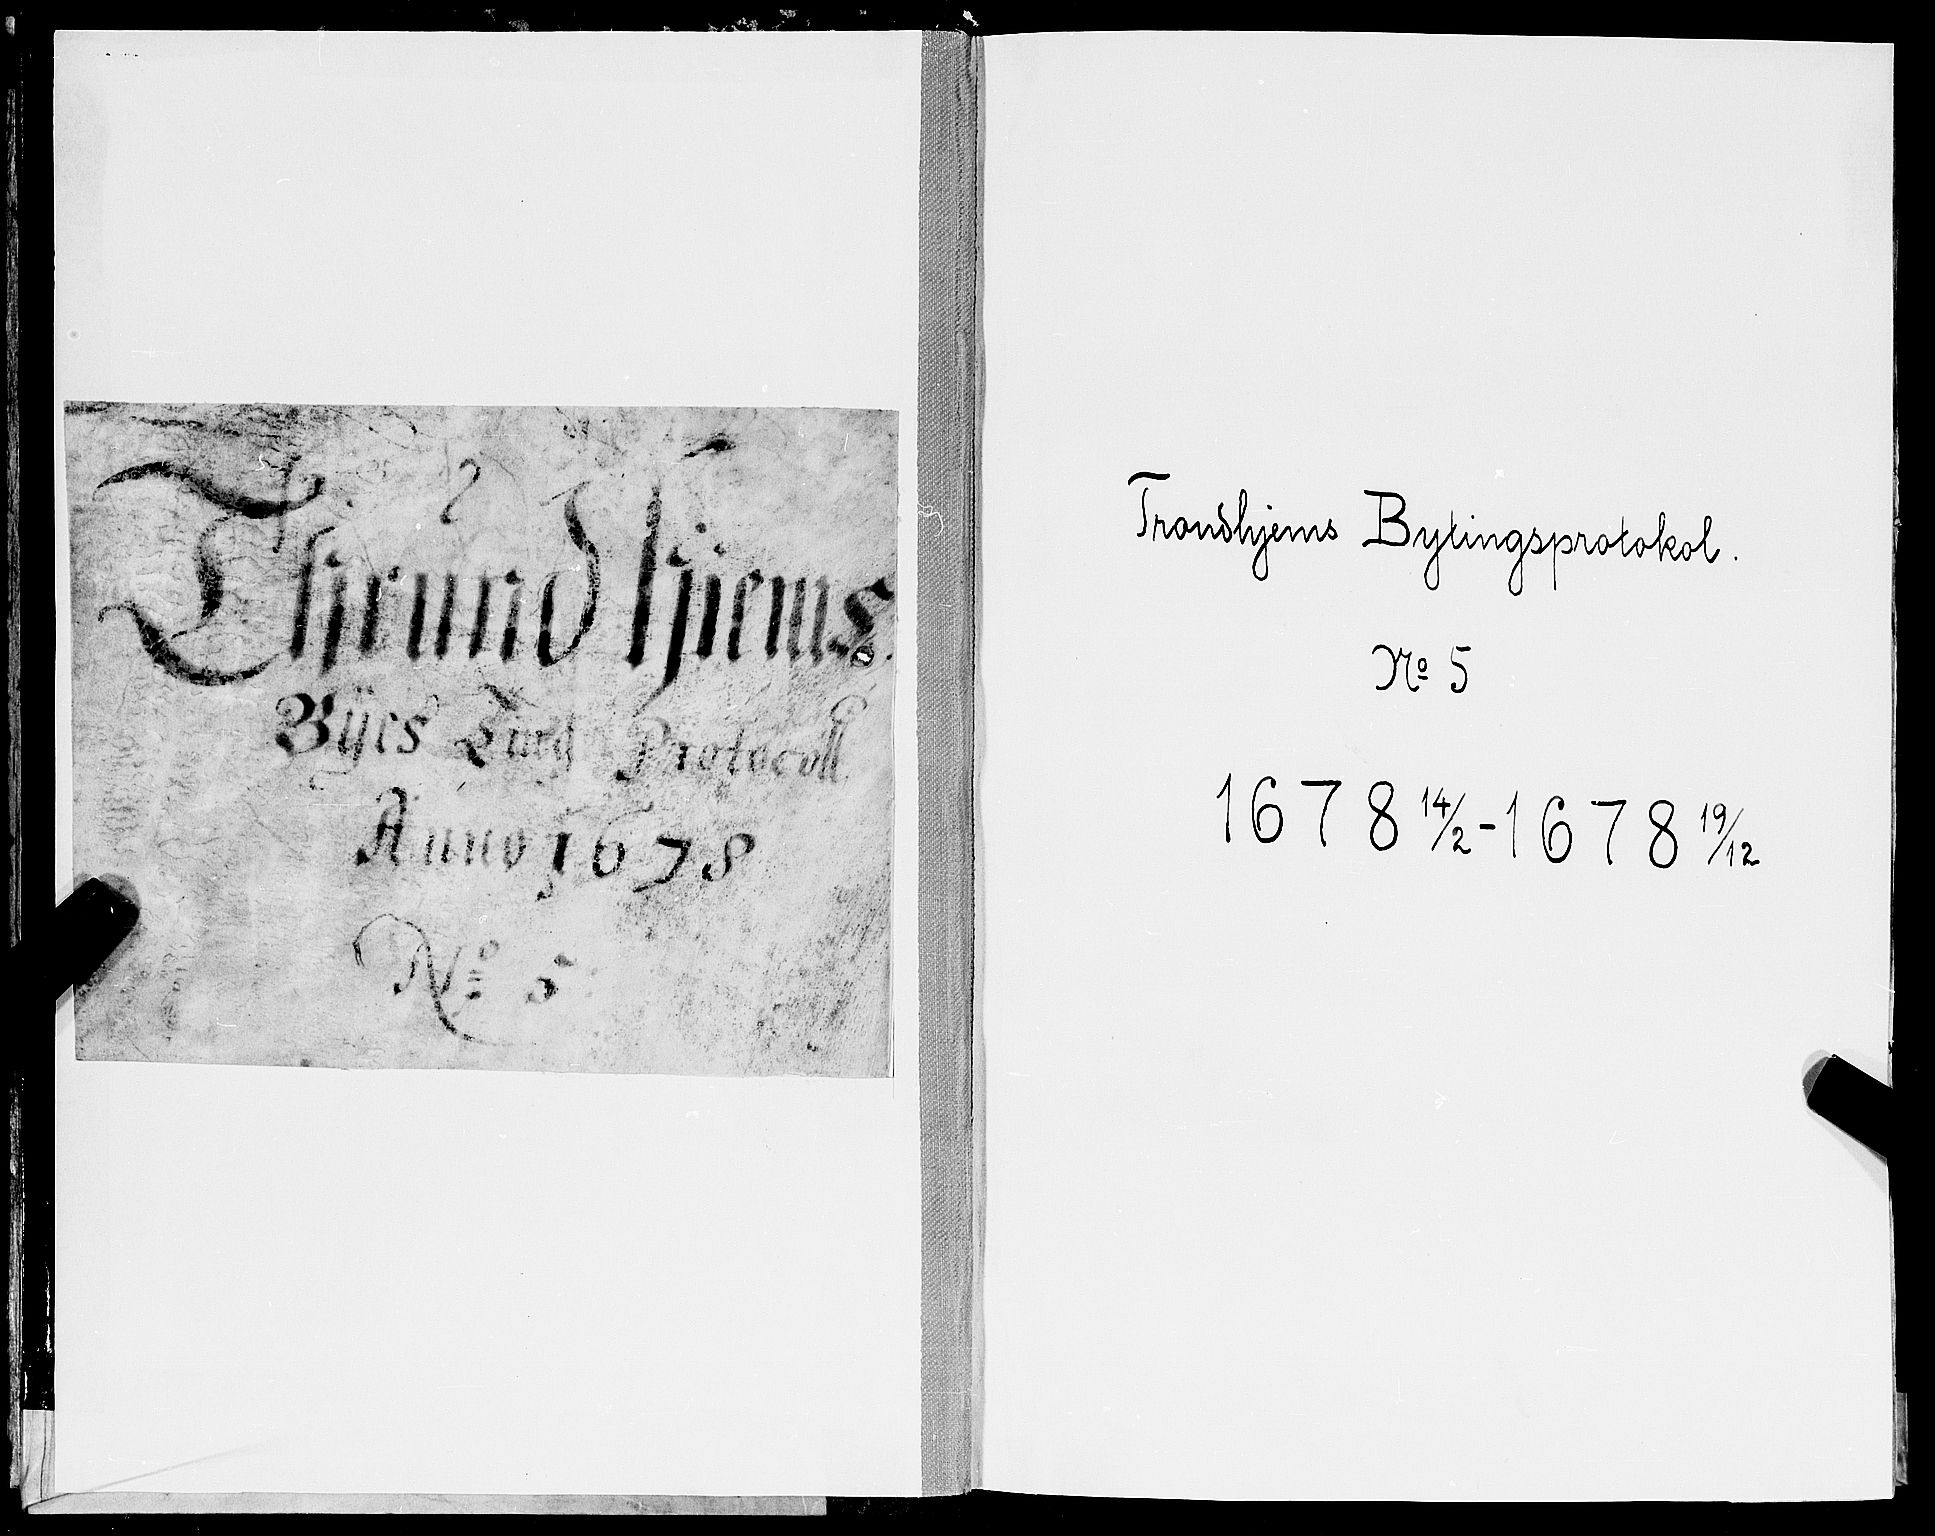 Thrundhiems
Bÿes Ting Protocoll
Anno 1678
No 5
Trondhjems Bytingsprotokol.
No 5
1678 14/2 - 1678 19/12